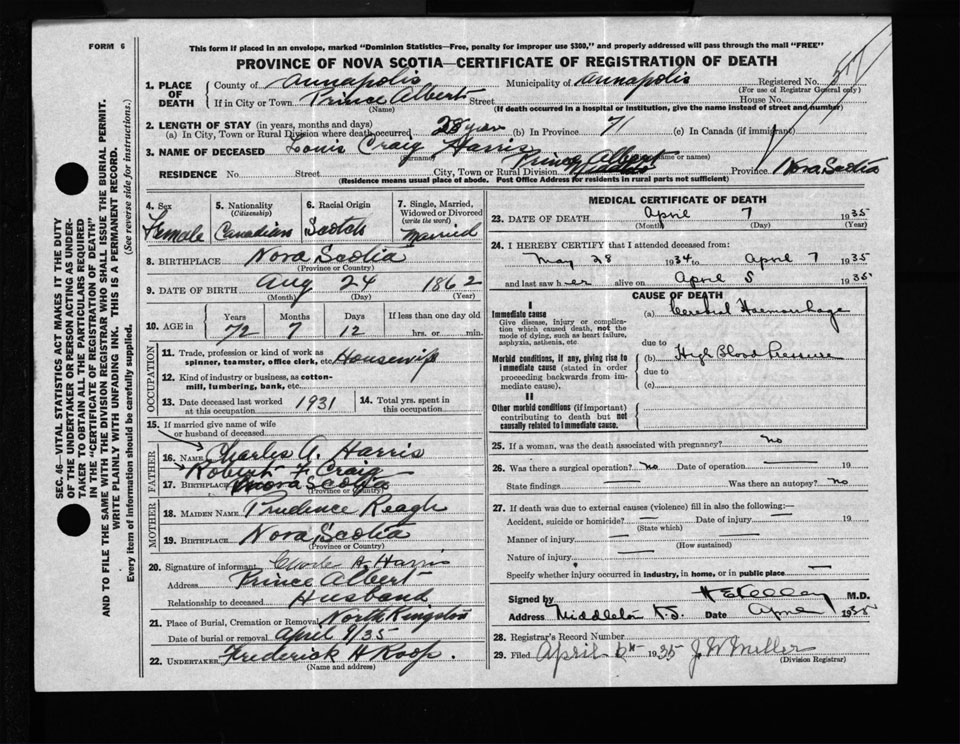 FORM 6
This form if placed in an envelope, marked "Dominion Statistics—Free, penalty for improper use $300," and properly addressed will pass through the mail "FREE"
PROVINCE OF NOVA SCOTIA—CERTIFICATE OF REGISTRATION OF DEATH
1. PLACE OF DEATH County of Annapolis Municipality of Annapolis Registered No.
(For use of Registrar General only)
If in City or Town Prince Albert Street House No.
(Name) (If death occurred in a hospital or institution, give the name instead of street and number)
2. LENGTH OF STAY (in years, months and days)
(a) In City, Town or Rural Division where death occurred 28 years (b) In Province 71 (c) In Canada (if immigrant)
3. NAME OF DECEASED Louis Craig Harris
(Surname) name or names)
RESIDENCE No. Street City, Town or Rural Division Prince Albert Province Nova Scotia
(Residence means usual place of abode. Post Office Address for residents in rural parts not sufficient)
4. Sex Female
5. Nationality (Citizenship) Canadian
6. Racial Origin Scotch
7. Single, Married, Widowed or Divorced (write the word) Married
8. BIRTHPLACE Nova Scotia
(Province or Country)
9. DATE OF BIRTH Aug 24 1862
(Month) (Day) (Year)
10. AGE in Years Months Days If less than one day old
72 7 12 hrs. or min.
OCCUPATION
11. Trade, profession or kind of work as spinner, teamster, office clerk, etc. Housewife
12. Kind of industry or business, as cotton-mill, lumbering, bank, etc.
13. Date deceased last worked at this occupation 1931
14. Total yrs. spent in this occupation
15. If married give name of wife or husband of deceased
FATHER
16. NAME Charles A. Harris
Robert F. Craig
17. BIRTHPLACE Nova Scotia
(Province or Country)
MOTHER
18. MAIDEN NAME Prudence Reagh
19. BIRTHPLACE Nova Scotia
(Province or Country)
20. Signature of informant Charles A. Harris
Address Prince Albert
Relationship to deceased Husband
21. Place of Burial, Cremation or Removal North Kingston
Date of burial or removal April 9/35
22. UNDERTAKER Frederick H Roop.
(Name and address)
MEDICAL CERTIFICATE OF DEATH
23. DATE OF DEATH April 7 1935
(Month) (Day) (Year)
24. I HEREBY CERTIFY that I attended deceased from:
May 28 1934 to April 7 1935
and last saw her alive on April 5 1935
CAUSE OF DEATH
I
Immediate cause
Give disease, injury or complication which caused death, not the mode of dying, such as heart failure, asphyxia, asthenia, etc.
(a) Cerebral Haemorrhage
due to
Morbid conditions, if any, giving rise to immediate cause (stated in order proceeding backwards from immediate cause).
(b) High Blood Pressure
due to
(c)
II
Other morbid conditions (if important) contributing to death but not causally related to immediate cause.
25. If a woman, was the death associated with pregnancy? no
26. Was there a surgical operation? no Date of operation 19
State findings Was there an autopsy? no
27. If death was due to external causes (violence) fill in also the following:—
Accident, suicide or homicide? Date of injury 19
(State which)
Manner of injury
(How sustained)
Nature of injury
Specify whether injury occurred in industry, in home, or in public place
Signed by M.D.
Address Middleton N.S. Date April 1935
28. Registrar's Record Number
29. Filed April 1935 J W Miller
(Division Registrar)
SEC. 46—VITAL STATISTICS ACT MAKES IT THE DUTY
OF THE UNDERTAKER OR PERSON ACTING AS UNDER-
TAKER TO OBTAIN ALL THE PARTICULARS REQUIRED
IN THE "CERTIFICATE OF REGISTRATION OF DEATH"
AND TO FILE THE SAME WITH THE DIVISION REGISTRAR WHO SHALL ISSUE THE BURIAL PERMIT.
WRITE PLAINLY WITH UNFADING INK. THIS IS A PERMANENT RECORD.
Every item of information should be carefully supplied. (See reverse side for instructions.)